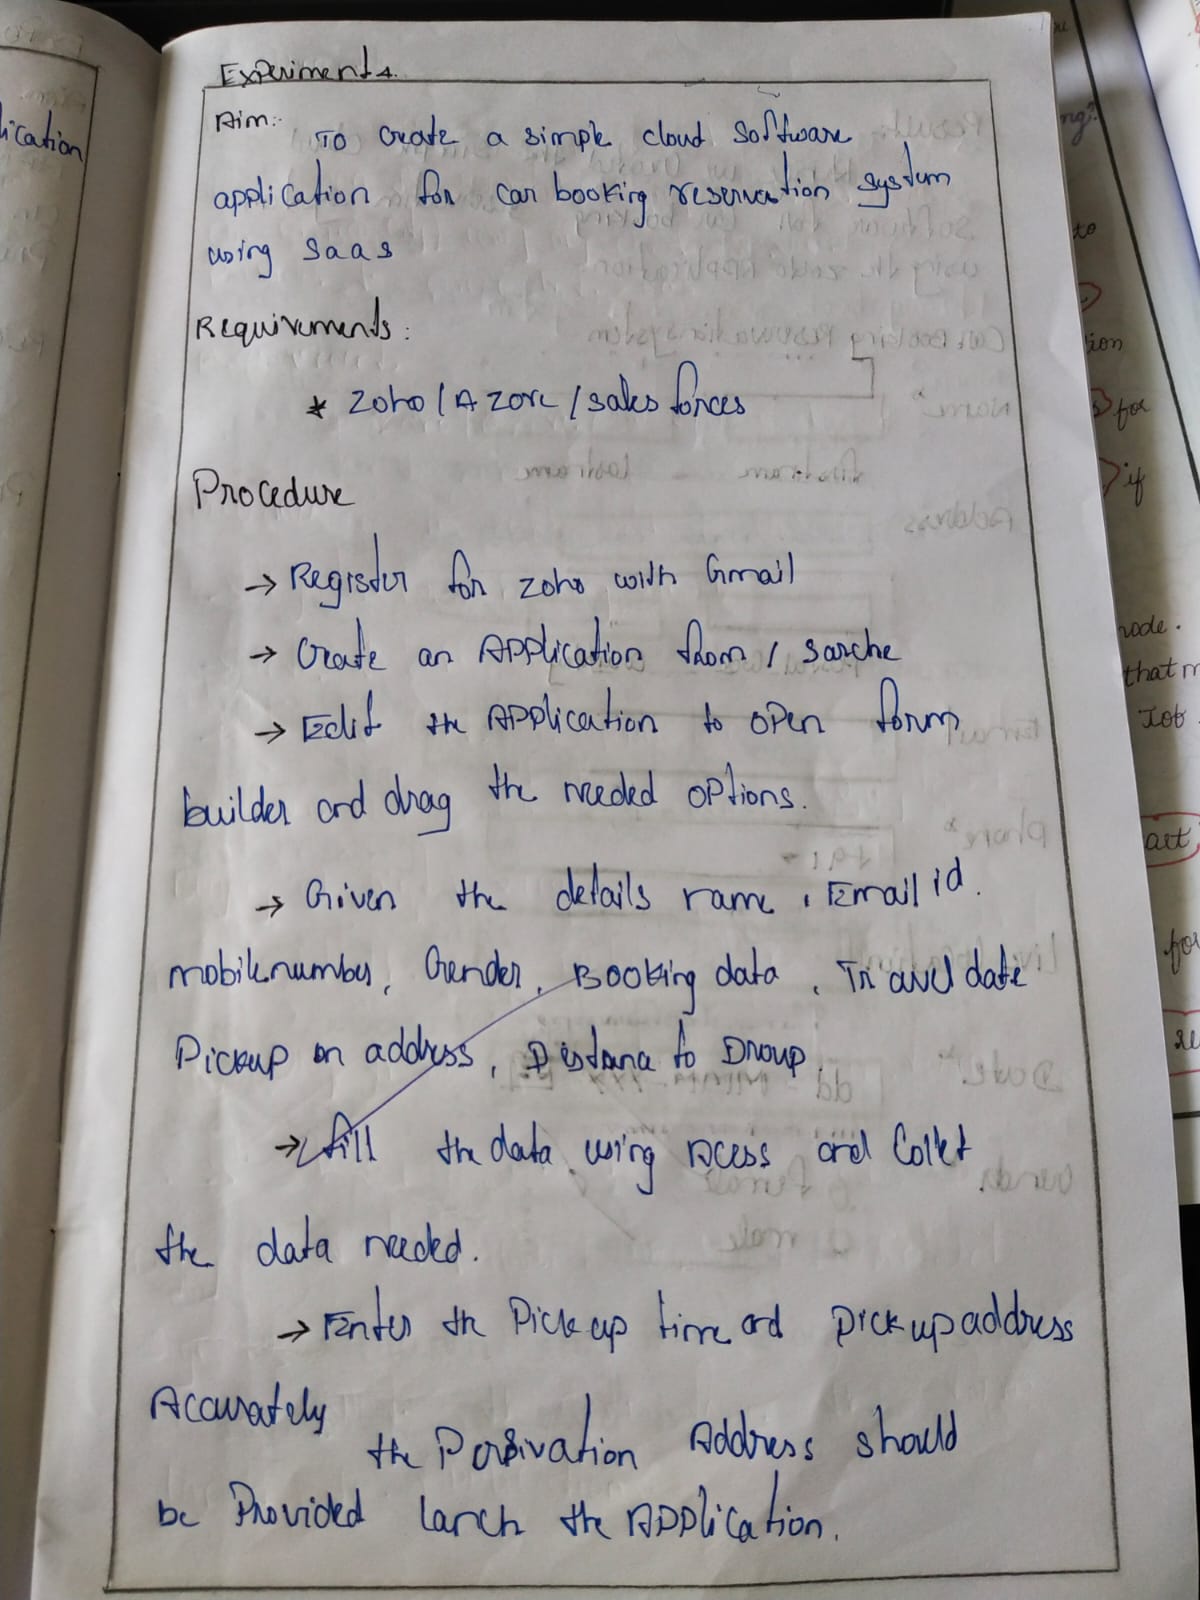 Experiment 4.
Aim:-
To create a simple cloud software
application for car booking reservation system
using saas
Requirements:
* Zoho / Azore / sales forces
Procedure
→ Register for zoho with Gmail
→ Create an Application from / sarche
→ Edit the Application to open form
builder and drag the needed options.
→ Given the details name, Email id.
mobile number, Gender, Booking data, Travel date
Pickup on address, Distana to Droup
→ fill the data using Acess and Collet
the data needed.
→ Enter the Pick up time and pick up address
Accurately
the Address should
be Provided lanch the Application.
ication
to
tion
for
if
node.
that m
Job
art
for